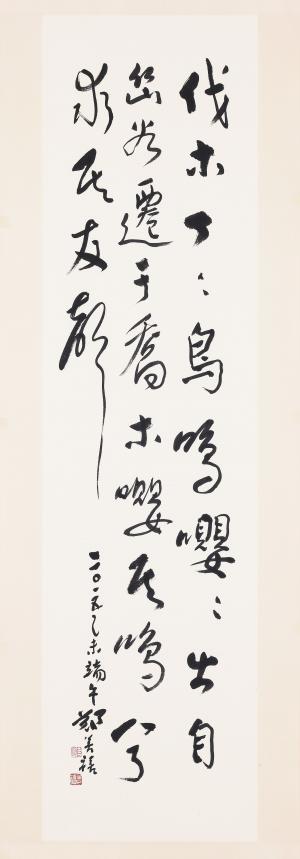 伐木丁丁鳥鳴嚶嚶出自
幽谷遷于喬木嚶其鳴兮
求其友聲
二〇一五乙未端午鄭善禧